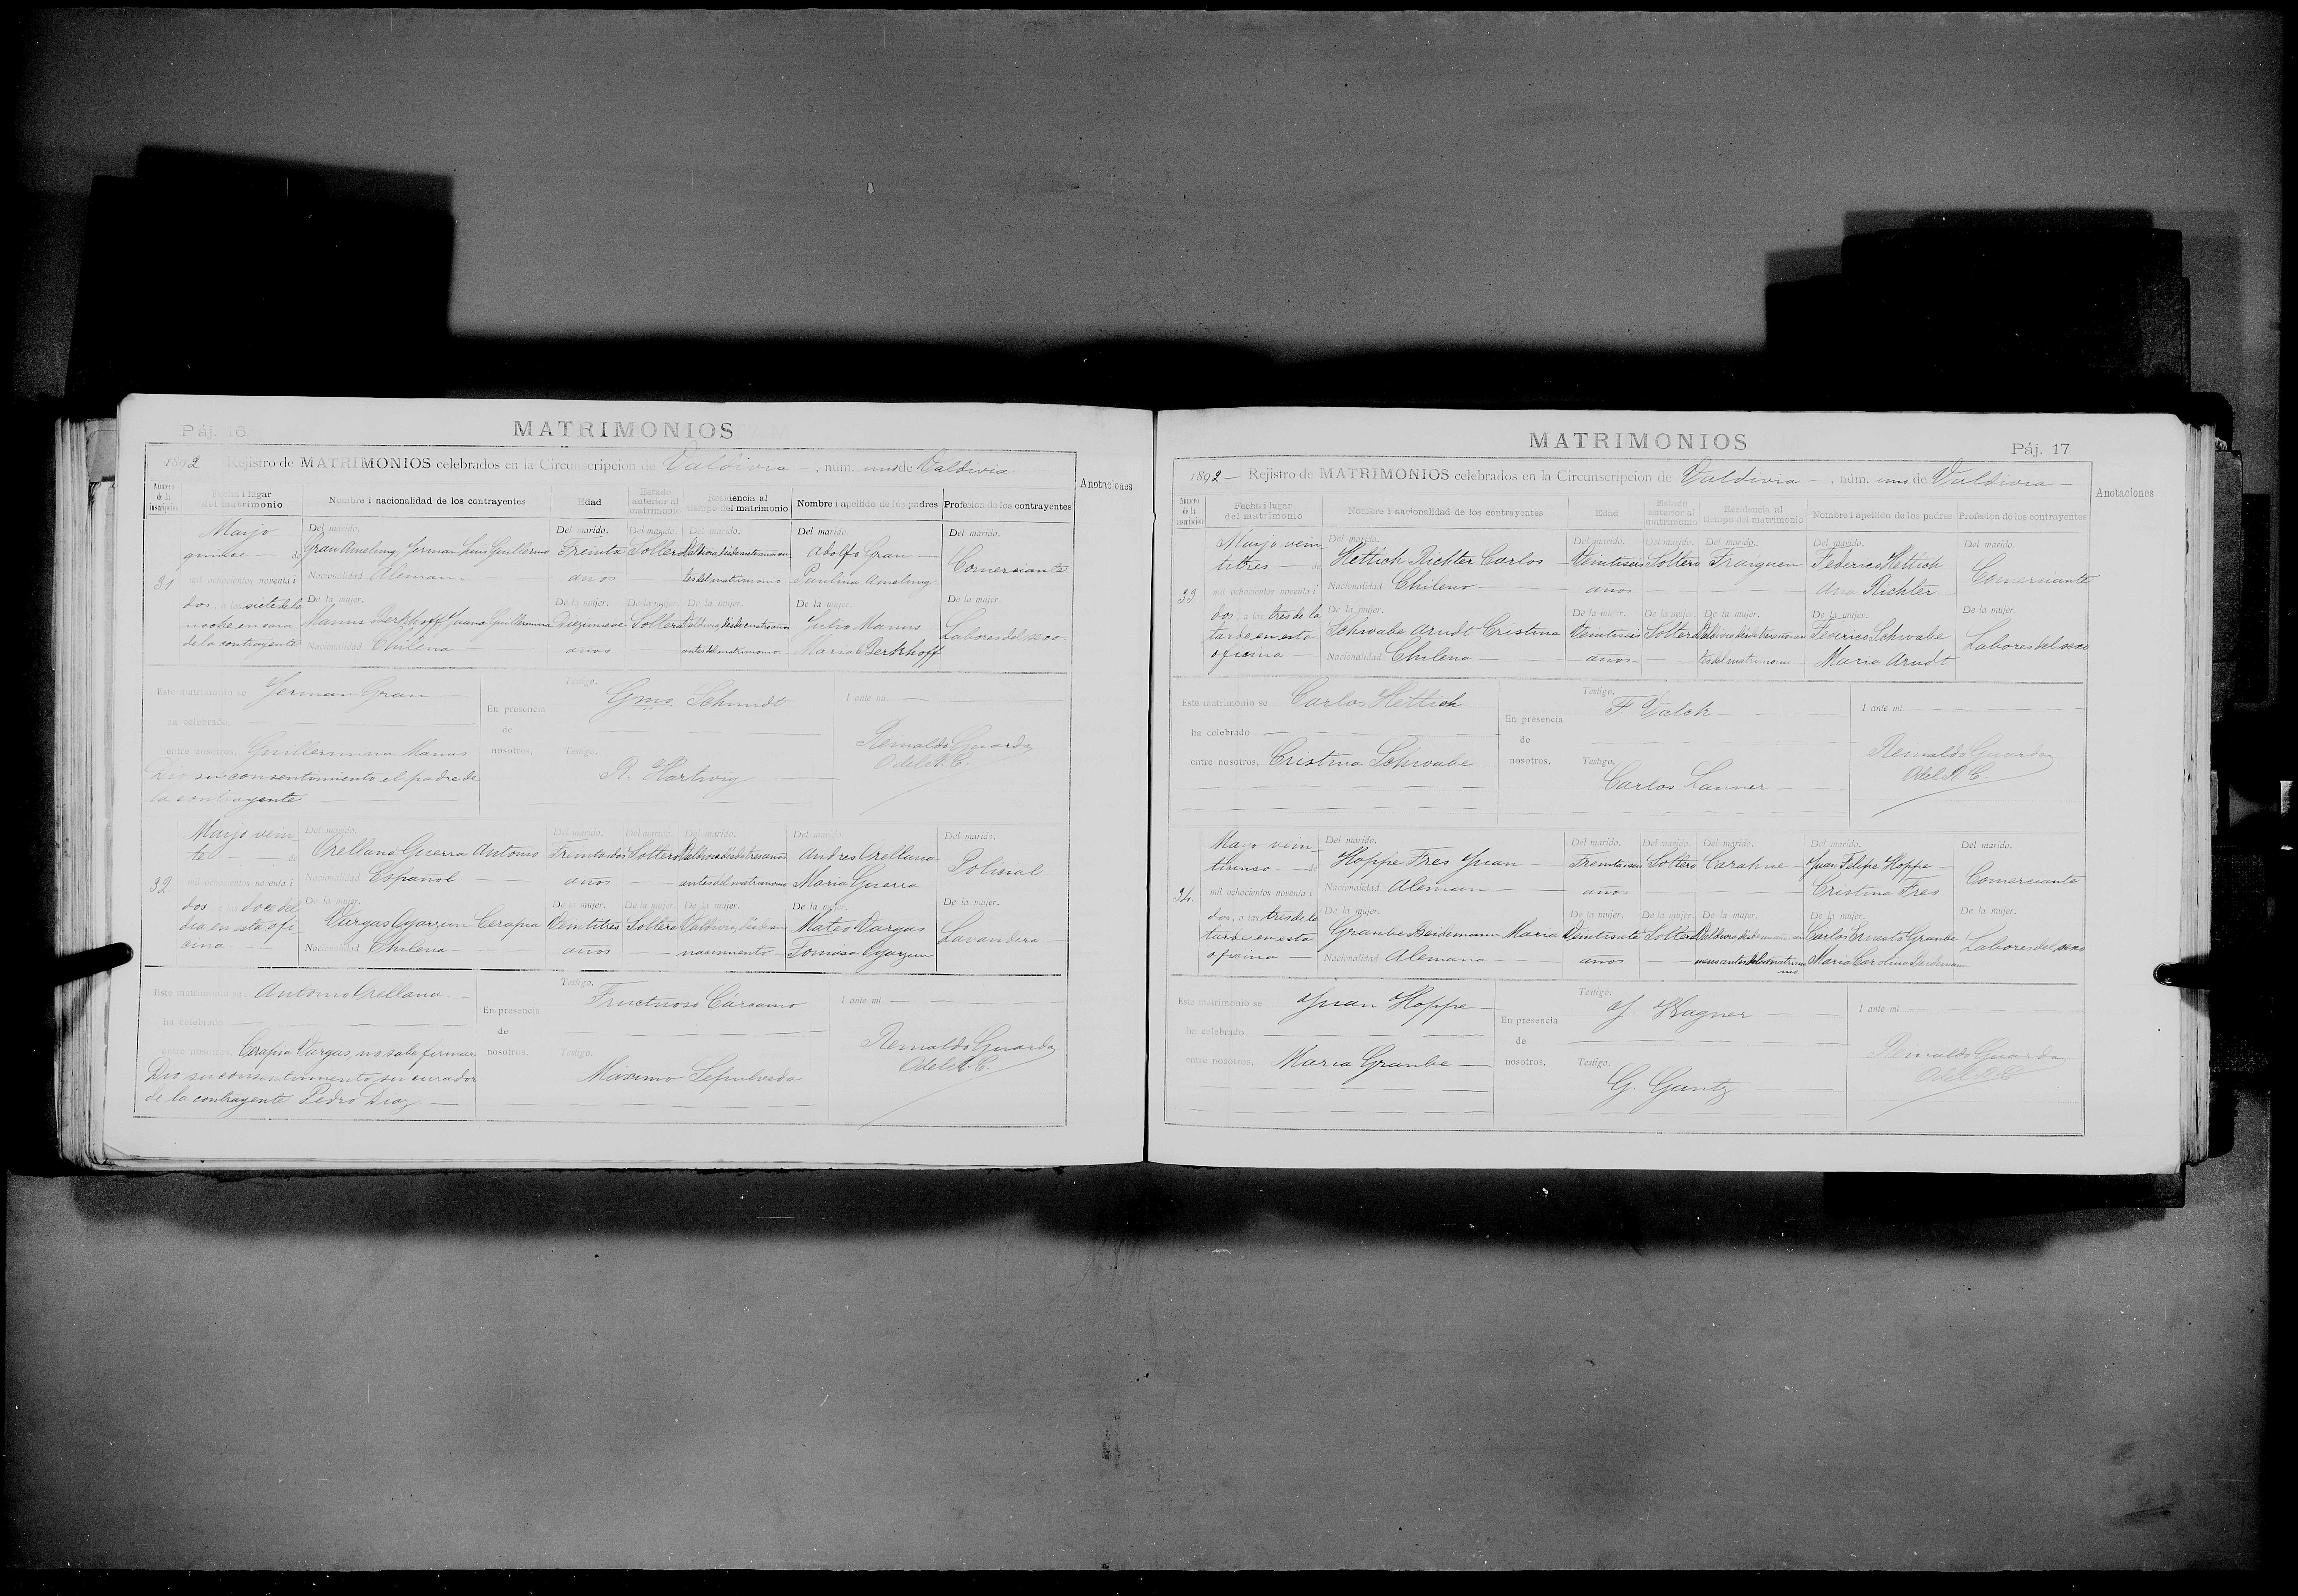 Páj. 16
MATRIMONIOS
1892 Rejistro de MATRIMONIOS celebrados en la Circunscripcion de Valdivia —, núm. uno de Valdivia
Número de la inscripcion
Fecha i lugar del matrimonio
Nombre i nacionalidad de los contrayentes
Edad
Estado anterior al matrimonio
Residencia al tiempo del matrimonio
Nombre i apellido de los padres
Profesion de los contrayentes
Anotaciones
31
Mayo
quince — de
mil ochocientos noventa i
dos, a las siete de la
noche en casa
de la contrayente
Del marido.
Gran Ameling Jerman Luis Guillermo
Nacionalidad Aleman —
De la mujer.
Manns Berkhoff Juana Guillermina
Nacionalidad Chilena —
Del marido.
Treinta
años
De la mujer.
Diezinueve
años
Del marido.
Soltero
De la mujer.
Soltera
Del marido.
Valdivia, desde siete años an
tes del matrimonio
De la mujer.
Valdivia, desde cuatro años
antes del matrimonio
Del marido.
Adolfo Gran —
Paulina Ameling
De la mujer.
Julio Manns
Maria Berkhoff
Del marido.
Comerciante
De la mujer.
Labores del sexo
Este matrimonio se
ha celebrado
entre nosotros,
Jerman Gran
Guillermina Manns
Dio su consentimiento el padre de
la contrayente —
En presencia
de
nosotros,
Testigo.
Gmo Schmidt
Testigo.
R. Hartwig
I ante mí. —
Reinaldo Guarda
O del R. C.
32.
Mayo vein
te — de
mil ochocientos noventa i
dos, a las doce del
dia en esta ofi
cina
Del marido.
Orellana Guerra Antonio
Nacionalidad Español —
De la mujer.
Vargas Oyarzun Cerapia
Nacionalidad Chilena —
Del marido.
Treintados
años
De la mujer.
Veintitres
años
Del marido.
Soltero
De la mujer.
Soltera
Del marido.
Valdivia desde tres años
antes del matrimonio
De la mujer.
Valdivia, desde su
nacimiento —
Del marido.
Andres Orellana
Maria Guerra
De la mujer.
Mateo Vargas
Tomasa Oyarzun
Del marido.
Polisial
De la mujer.
Lavandera
Este matrimonio se
ha celebrado
entre nosotros,
Antonio Orellana. —
Cerapia Vargas, no sabe firmar
Dio su consentimiento su curador
de la contrayente Pedro Diaz —
En presencia
de
nosotros,
Testigo.
Fructuoso Cárcamo
Testigo.
Máximo Sepulveda
I ante mí —
Reinaldo Guarda
O del R. C.
MATRIMONIOS
Páj. 17
1892 — Rejistro de MATRIMONIOS celebrados en la Circunscripcion de Valdivia —, núm. uno de Valdivia —
Número de la inscripcion
Fecha i lugar del matrimonio
Nombre i nacionalidad de los contrayentes
Edad
Estado anterior al matrimonio
Residencia al tiempo del matrimonio
Nombre i apellido de los padres
Profesion de los contrayentes
Anotaciones
33.
Mayo vein
titres — de
mil ochocientos noventa i
dos, a las tres de la
tarde en esta
oficina —
Del marido.
Hettich Richter Carlos —
Nacionalidad Chileno —
De la mujer.
Schwabe Arndt Cristina
Nacionalidad Chilena —
Del marido.
Veintiseis
años
De la mujer.
Veintiseis
años
Del marido.
Soltero
De la mujer.
Soltera
Del marido.
Traiguen
De la mujer.
Valdivia desde tres años an
tes del matrimonio
Del marido.
Federico Hettich
Ana Richter
De la mujer.
Federico Schwabe
Maria Arndt
Del marido.
Comerciante
De la mujer
Labores del sexo
Este matrimonio se
ha celebrado
entre nosotros,
Carlos Hettich
Cristina Schwabe
En presencia
de
nosotros,
Testigo.
F Valck
Testigo.
Carlos Lanner
I ante mí —
Reinaldo Guarda
O del R. C.
34.
Mayo vein
tisinco — de
mil ochocientos noventa i
dos, a las tres de la
tarde en esta
oficina —
Del marido.
Hoppe Fres Juan —
Nacionalidad Aleman —
De la mujer.
Graube Beidemann Maria
Nacionalidad Alemana —
Del marido.
Treintaseis
años
De la mujer.
Veintisiete
años
Del marido.
Soltero
De la mujer.
Soltera
Del marido.
Carahue —
De la mujer.
Valdivia desde un
mes antes del matrimo
nio
Del marido.
Juan Felipe Hoppe —
Cristina Fres
De la mujer.
Carlos Ernesto Graube
Maria Carolina Beidemann
Del marido.
Comerciante
De la mujer.
Labores del sexo
Este matrimonio se
ha celebrado
entre nosotros,
Juan Hoppe —
Maria Graube —
En presencia
de
nosotros,
Testigo.
J. Wagner —
Testigo.
G. Gantz
I ante mí —
Reinaldo Guarda
O del R. C.